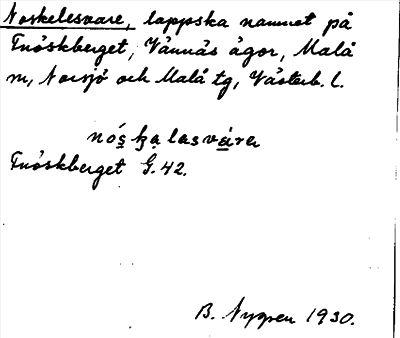 Noskelesvare, lappska namnet på
Tnöskberget, Vännäs ägor, Malå
m, Norsjö och Malå tg, Västerb. l.
nós̱ḵa̱lasva̱ra
Tnöskberget G. 42.
B. Nygren 1930.